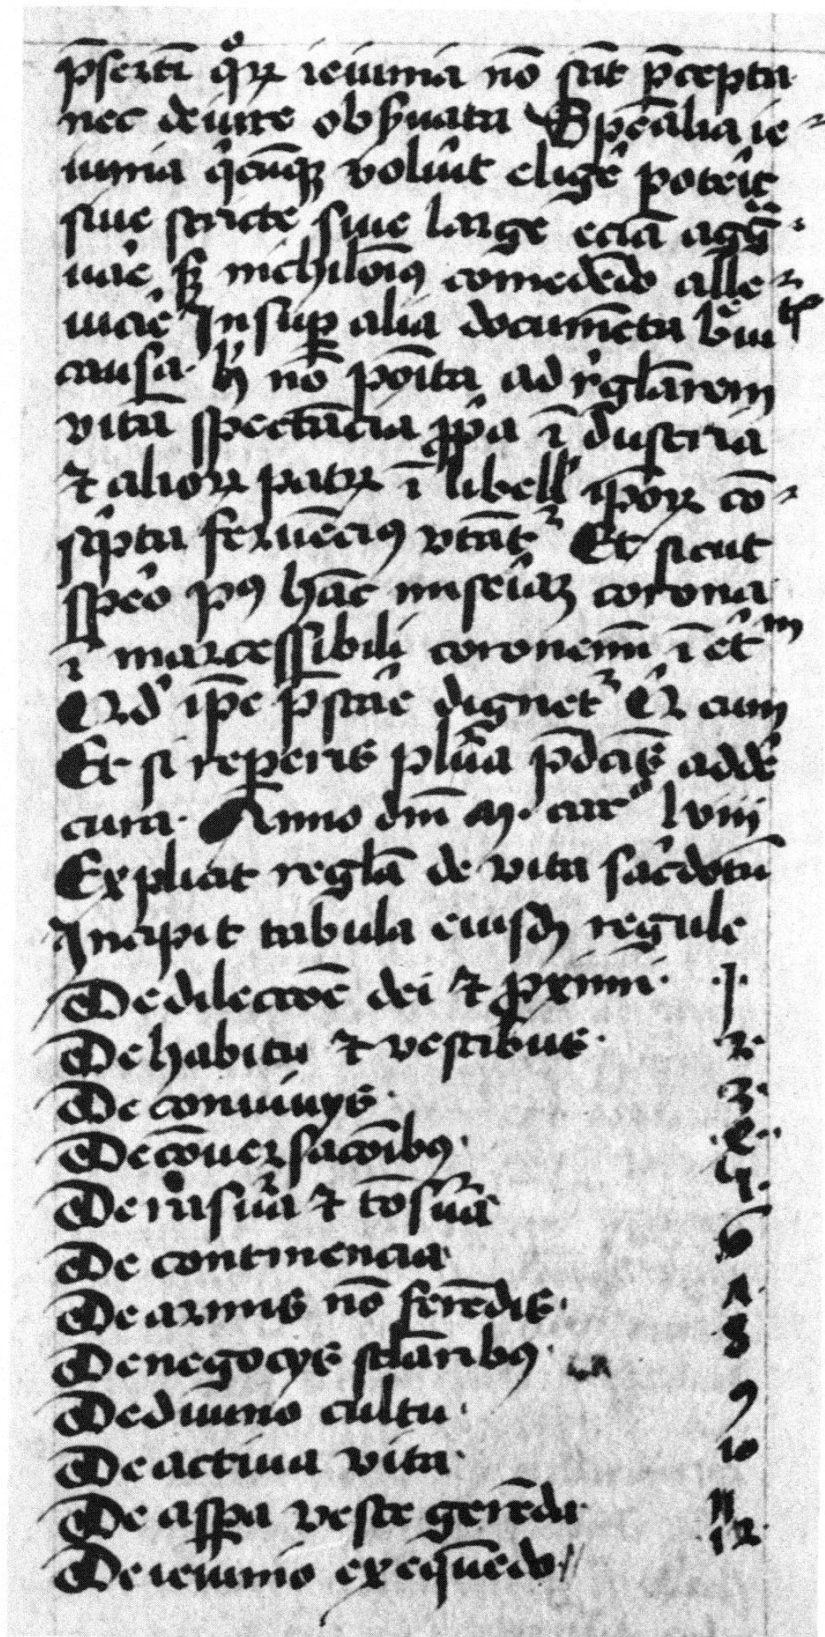 p̄sertī qͦꝝ ieiunia nō sūt p̄cepta
nec de iure obſ̓uata Spēalia ie⸗
iunia q̓cūqꝫ volūīt elige̓ pote̓it
siue stricte siue large eciā agg̃⸗
uāe sꝫ nichilōīꝰ comedēdo alle⸗
uiāe Insuꝑ alia documēta bͤuitͭ
causa· h̓ nō poīta ad r̓glārem
vitā spectācia ꝓp̓a ī dustria
⁊ alioꝝ patꝝ ī libell̓ ip̄oꝝ cō⸗
sc̓pta feruēciꝰ vtāt᷑ Et sicut
spe̓o pꝰ hāc mise̓iaꝫ corona
ī marcessibili coronemī ī et̓m
Qd̓ ip̄e p̄stāe dignet᷑ Q̓ cum
Et si reperis plūa p̄dcīs addē
cura· Anno dm̄ m· cccͦ lviii
Explicit reglā de vita sac̓dotū
Incipit tabula eiusdꝫ regule
De dileccōe dei ⁊ ꝓximi· ·I·
De habitu ⁊ vestibus· 2·
De conuiuijs· 3·
De cōuersacōibꝰ· ·ꝝ·
De rasūa ⁊ tōsūa 5·
De continencia 6
De armis nō ferēdis· ʌ·
De negocijs sclāribꝰ· 8
De diuino cultu· 9
De actiua vita· 10
De asꝑa veste gerēda· 11
De ieiunio exeq̄uēdo// ·12·